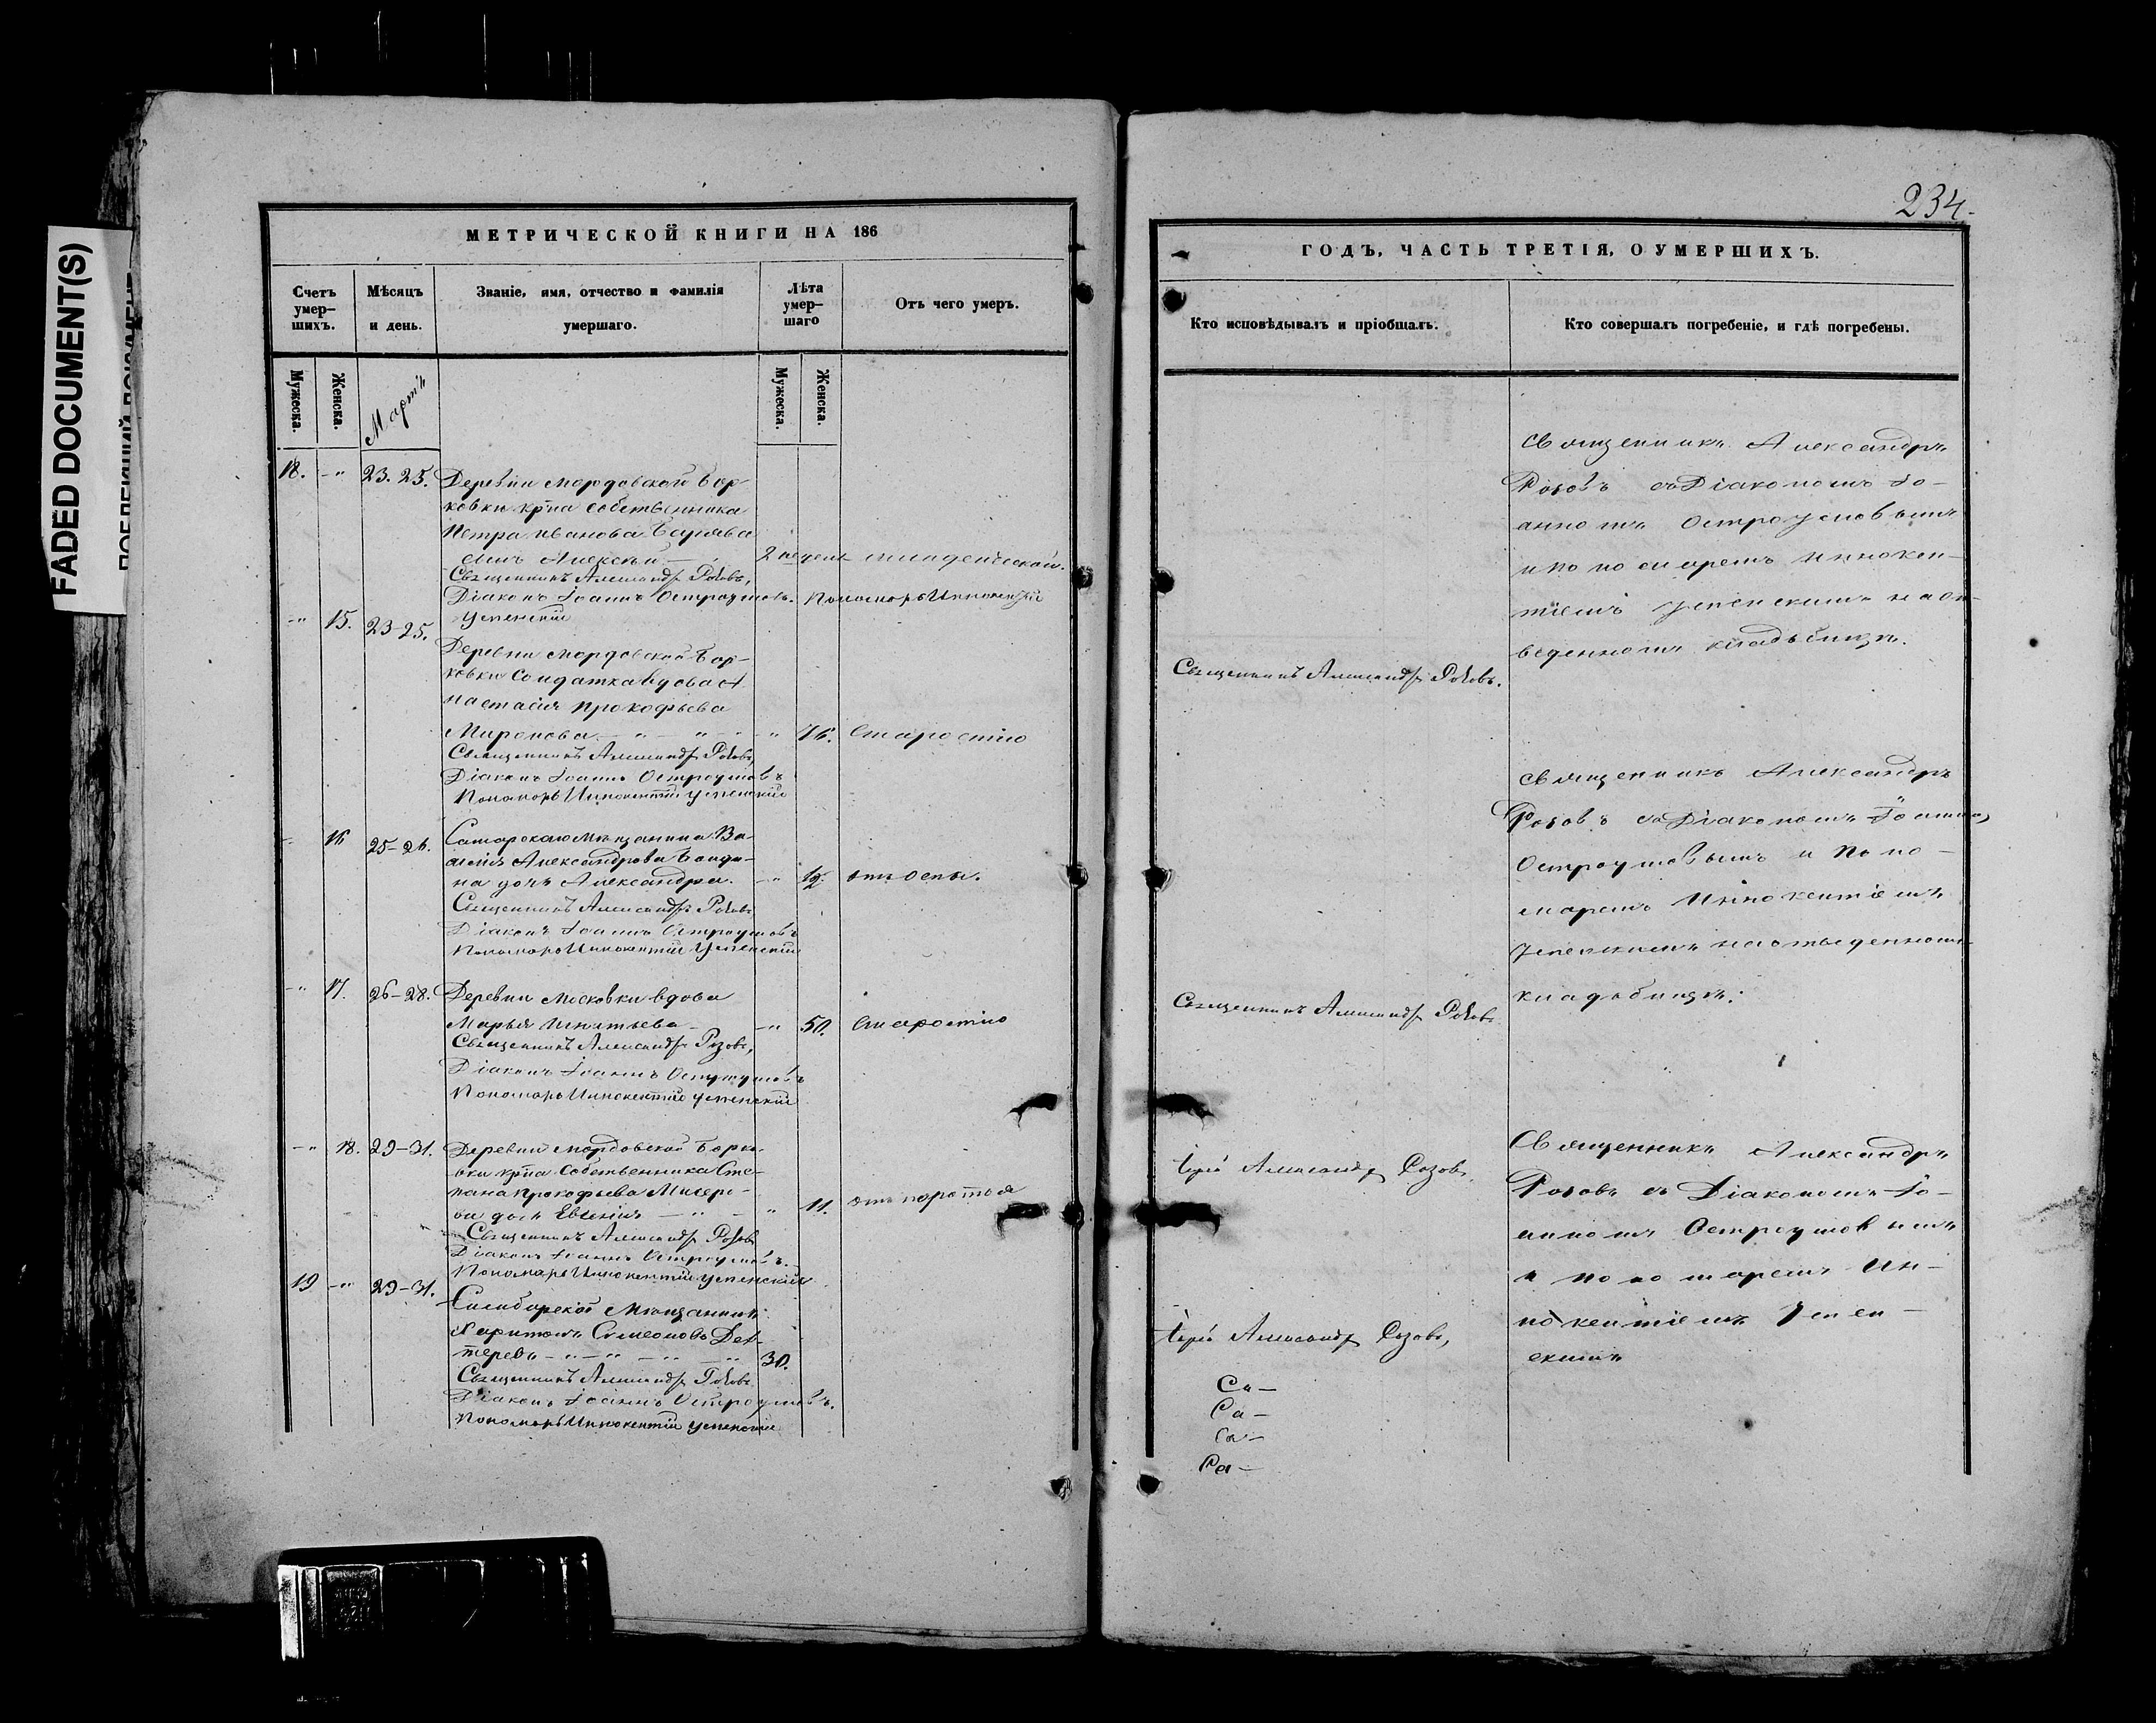 FADED DOCUMENT(S)
МЕТРИЧЕСКОЙ КНИГИ НА 186
Счетъ умер-
шихъ.
Мѣсяцъ
и день.
Званіе, имя, отчество и фамилія
умершаго.
Лѣта
умер-
шаго
Отъ чего умеръ.
Мужеска.
Женска.
Мартъ
Мужеска.
Женска.
18. -"- 23. 25. Деревни Мордовской Бор-
ковки кр͞на собственника
Петра Иванова
сынъ Алексѣй 2 недели младенческой.
Священникъ Александръ Розовъ,
Діаконъ Іоаннъ Остроумовъ. Пономарь Иннокентій
Успенскій
-"- 15. 23-25.
Деревни Мордовской Бор-
ковки Солдатка вдова А
настасія Прокофьева
Миронова - " - " - " 76. Старостію
Священникъ Александръ Розовъ,
Діаконъ Іоаннъ Остроумовъ
Пономарь Иннокентій Успенскій
16 25-26. Самарскаго Мѣщанина Ва-
силія Александрова
на дочь Александра. -" отъ оспы.
Священникъ Александръ Розовъ
Діаконъ Іоаннъ Остроумовъ
Пономарь Иннокентій Успенскій
-"- 17. 26-28. Деревни Московки вдова
Марья Игнатьева -" 50. Старостію
Священникъ Александръ Розовъ,
Діаконъ Іоаннъ Остроумовъ
Пономарь Иннокентій Успенскій
-"- 18. 29-31. Деревни Мордовской Борко-
вки кр͞на Собственника Сте-
пана Прокофьева
дочь Евгенія - " - " 11.
Священникъ Александръ Розовъ
Діаконъ Іоаннъ Остроумовъ.
Пономарь Иннокентій Успенскій
19 -"- 29-31.
Симбирской Мѣщанинъ
Харитонъ Симеоновъ Дех-
теревъ - " - " - " - " 30.
Священникъ Александръ Розовъ
Діаконъ Іоаннъ Остроумовъ.
Пономарь Иннокентій Успенскій
234.
ГОДЪ, ЧАСТЬ ТРЕТІЯ, О УМЕРШИХЪ.
Кто исповѣдывалъ и пріобщалъ.
Кто совершалъ погребеніе, и гдѣ погребены.
Священникъ Александръ
Розовъ съ Діакономъ Іо-
анномъ Остроумовымъ
и пономаремъ Иннокен-
тіемъ Успенскимъ на от-
веденномъ кладбищѣ.
Священникъ Александръ Розовъ.
Священникъ Александръ
Розовъ съ Діакономъ Іоанно
Остроумовымъ и Поно-
маремъ Иннокентіемъ
Успенскимъ на отведенномъ
кладбищѣ.
Священникъ Александръ Розовъ
Священникъ Александръ
Розовъ съ Діакономъ Іо-
анномъ Остроумовымъ
и пономаремъ Ин-
нокентіемъ Успен-
скимъ
Іерей Александръ Розовъ,
Іерей Александръ Розовъ,
Са-
Са-
Са-